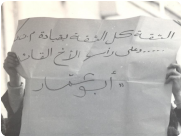 الثقة كل الثقة بقيادة م
.....وعلى رأسهم الأخ القائد
"أبو عمار"